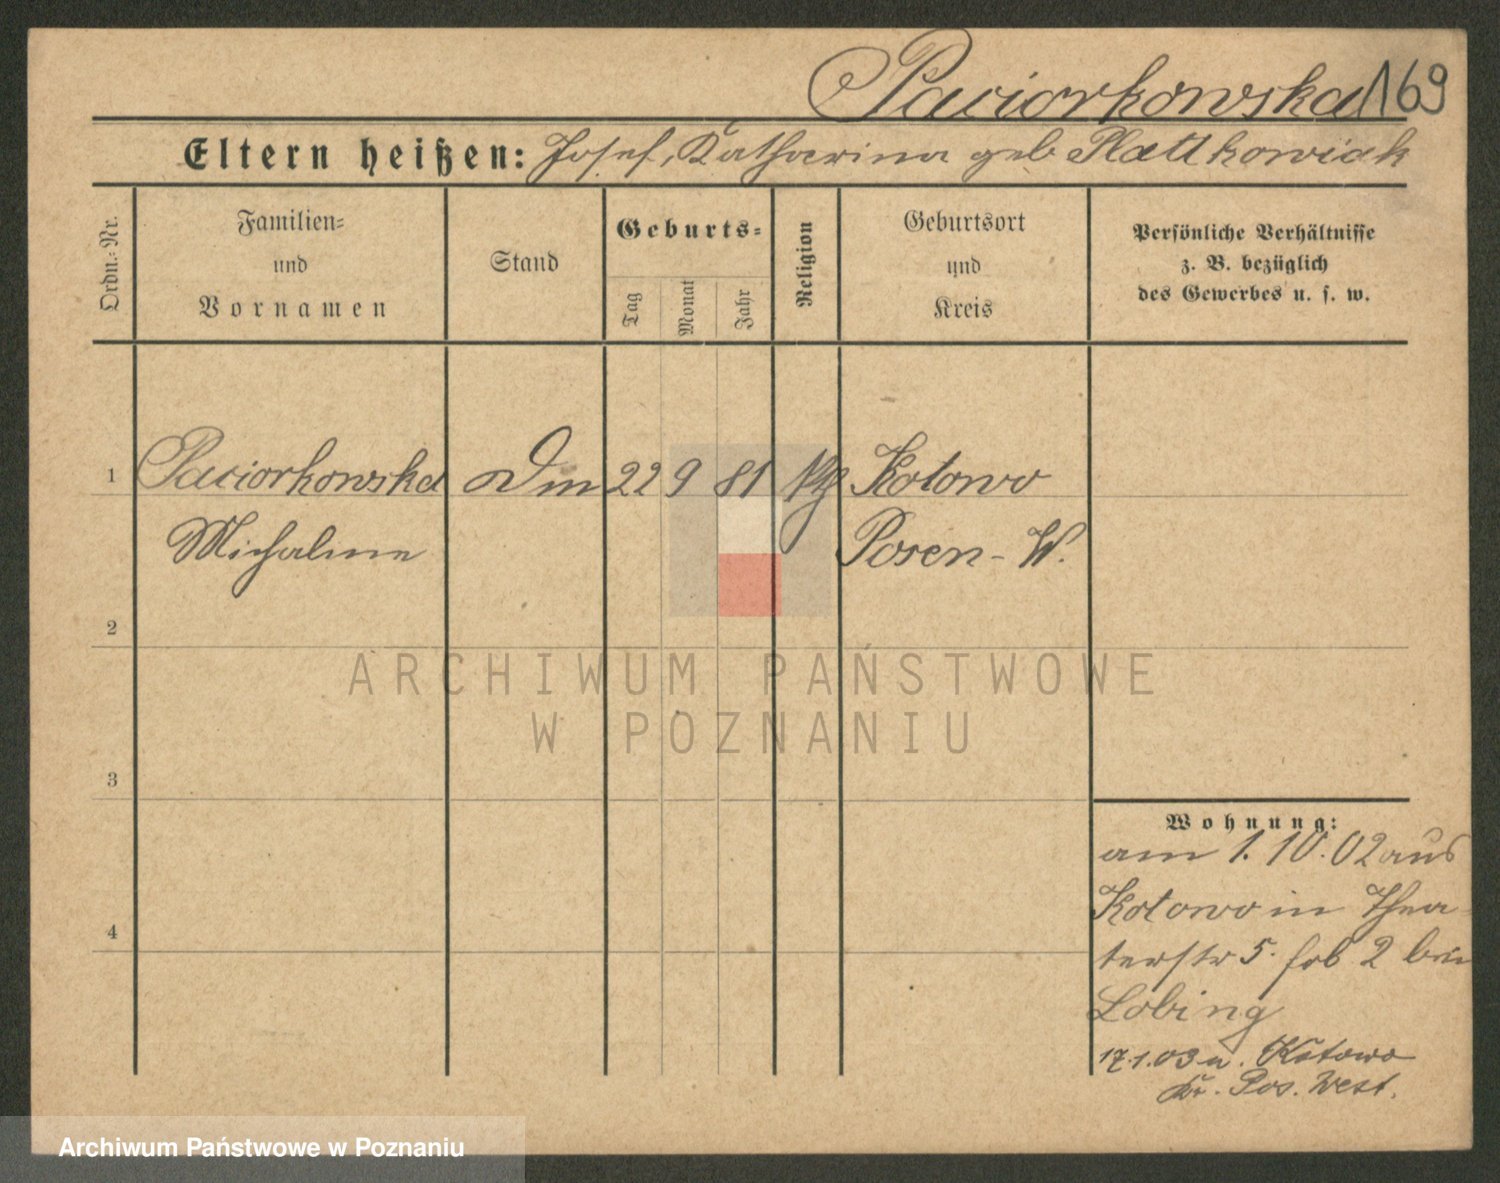 Paciorkowska 169
Eltern heißen: Josef, Katharina geb Plattkowiak
Ordn.-Nr.
Familien-
und
Vornamen
Stand
Geburts-
Tag
Monat
Jahr
Religion
Geburtsort
und
Kreis
Persönliche Verhältnisse
z. B. bezüglich
des Gewerbes u. s. w.
1 Paciorkowska 22 9 81 Kotowo
Michaline Posen-W.
2
3
4
Wohnung:
am 1.10.02 aus
Kotowo in Thea-
terstr 5. 2 bei
Lobing
17.1.03 n. Kotowo
Kr. Pos. West.
ARCHIWUM PAŃSTWOWE
W POZNANIU
Archiwum Państwowe w Poznaniu